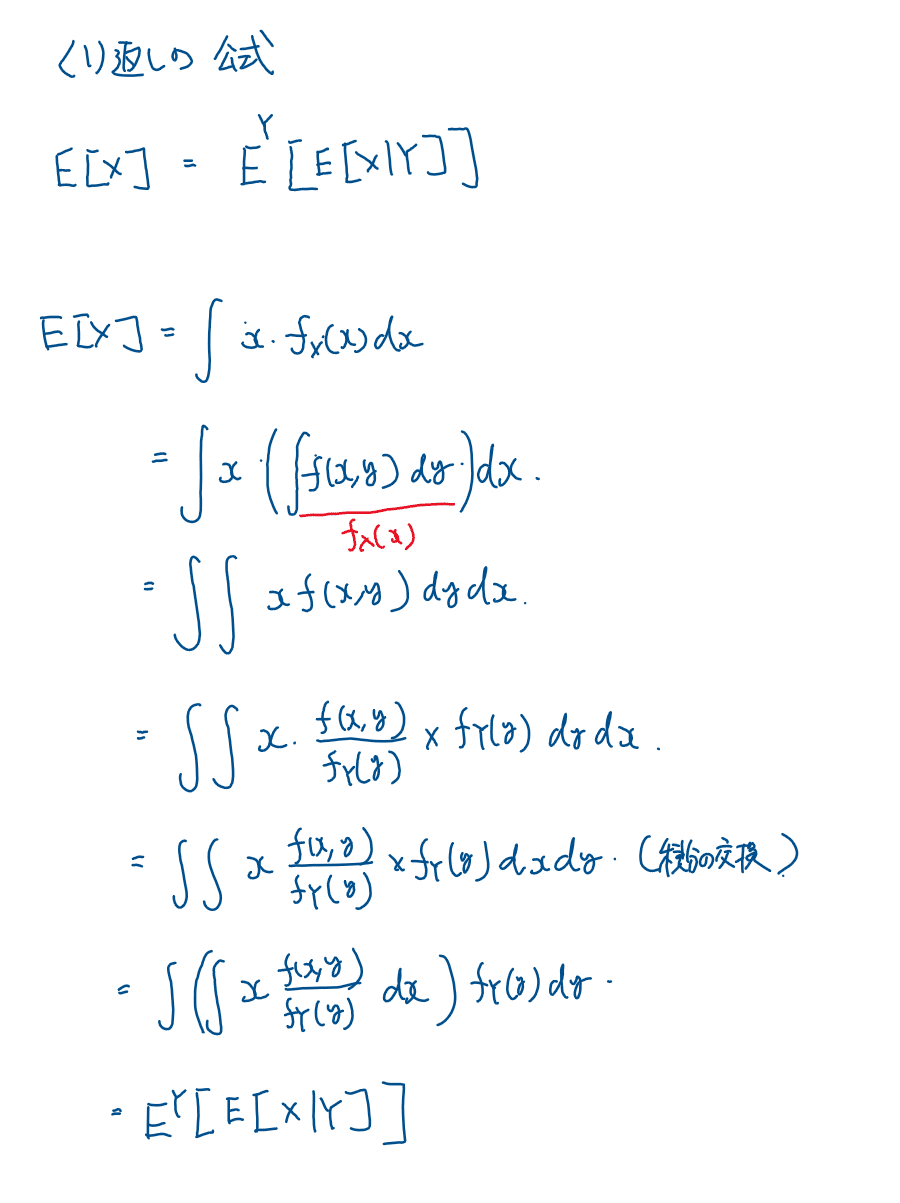 くり返しの 公式
E[X] = E^Y[E[X|Y]]
E[X] = ∫ x・f_X(x)dx
= ∫ x・(∫f(x,y) dy・)dx.
f_X(x)
= ∫∫ x f(x,y) dy dx.
= ∫∫ x・ f(x,y)/f_Y(y) × f_Y(y) dy dx.
= ∫∫ x f(x,y)/f_Y(y) × f_Y(y) dx dy・ (積分の交換)
= ∫(∫ x f(x,y)/f_Y(y) dx) f_Y(y) dy・
= E^Y[E[X|Y]]